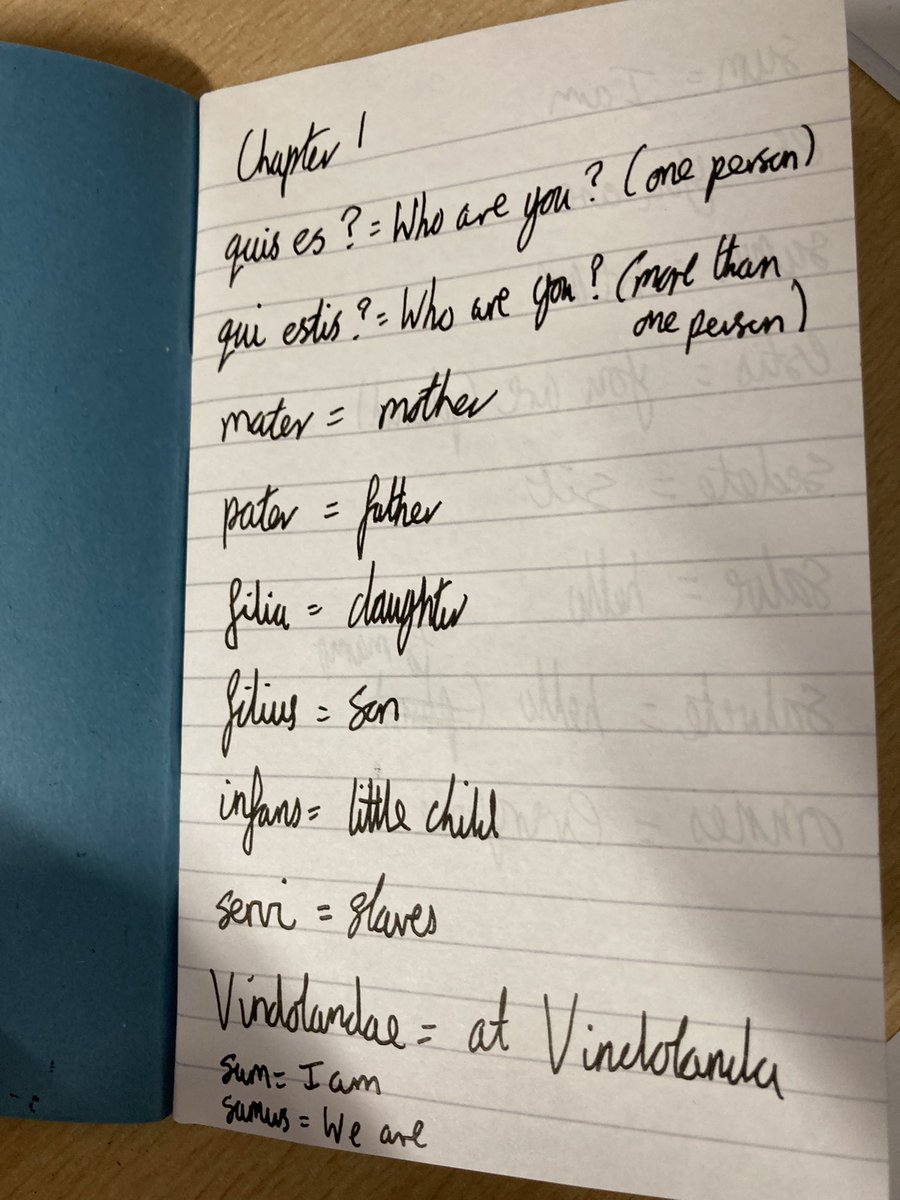 Chapter 1
quis es? = Who are you? (one person)
qui estis? = Who are you? (more than
one person)
mater = mother
pater = father
filia = daughter
filius = son
infans = little child
servi = slaves
Vindolandae = at Vindolanda
sum = I am
sumus = We are